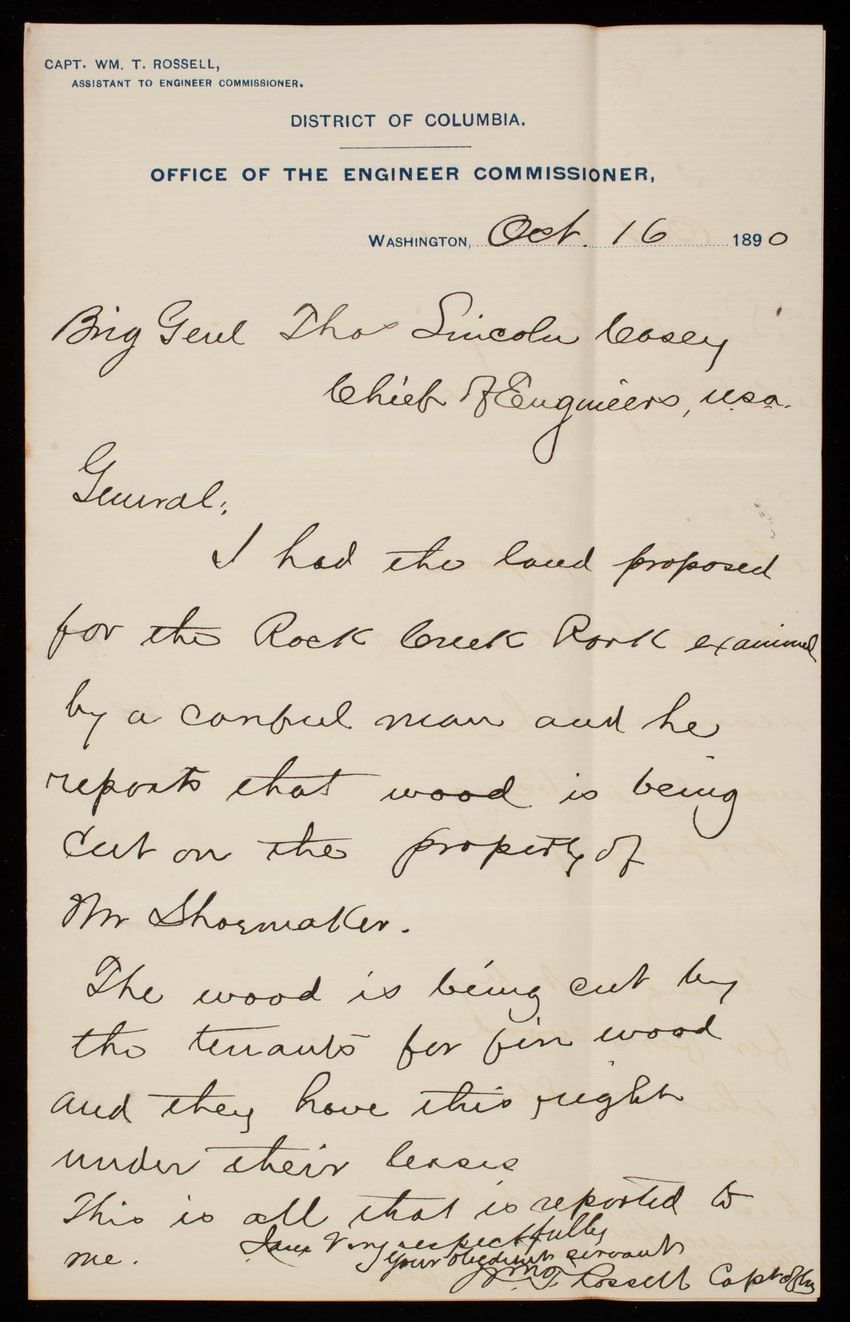 CAPT. WM. T. ROSSELL,
ASSISTANT TO ENGINEER COMMISSIONER.
DISTRICT OF COLUMBIA.
OFFICE OF THE ENGINEER COMMISSIONER,
WASHINGTON, Oct. 16 1890
Brig Genl Thos Lincoln Casey
Chief of Engineers, U.S.A.
General;
I had the land proposed
for the Rock Creek Park examined
by a careful man and he
reports that wood is being
cut on the property of
Mr Shoemaker.
The wood is being cut by
the tenants for fire wood
and they have this right
under their leases
This is all that is reported to
me.
I am Very respectfully
Your obedient servant
Wm. T. Rossell Capt of Eng